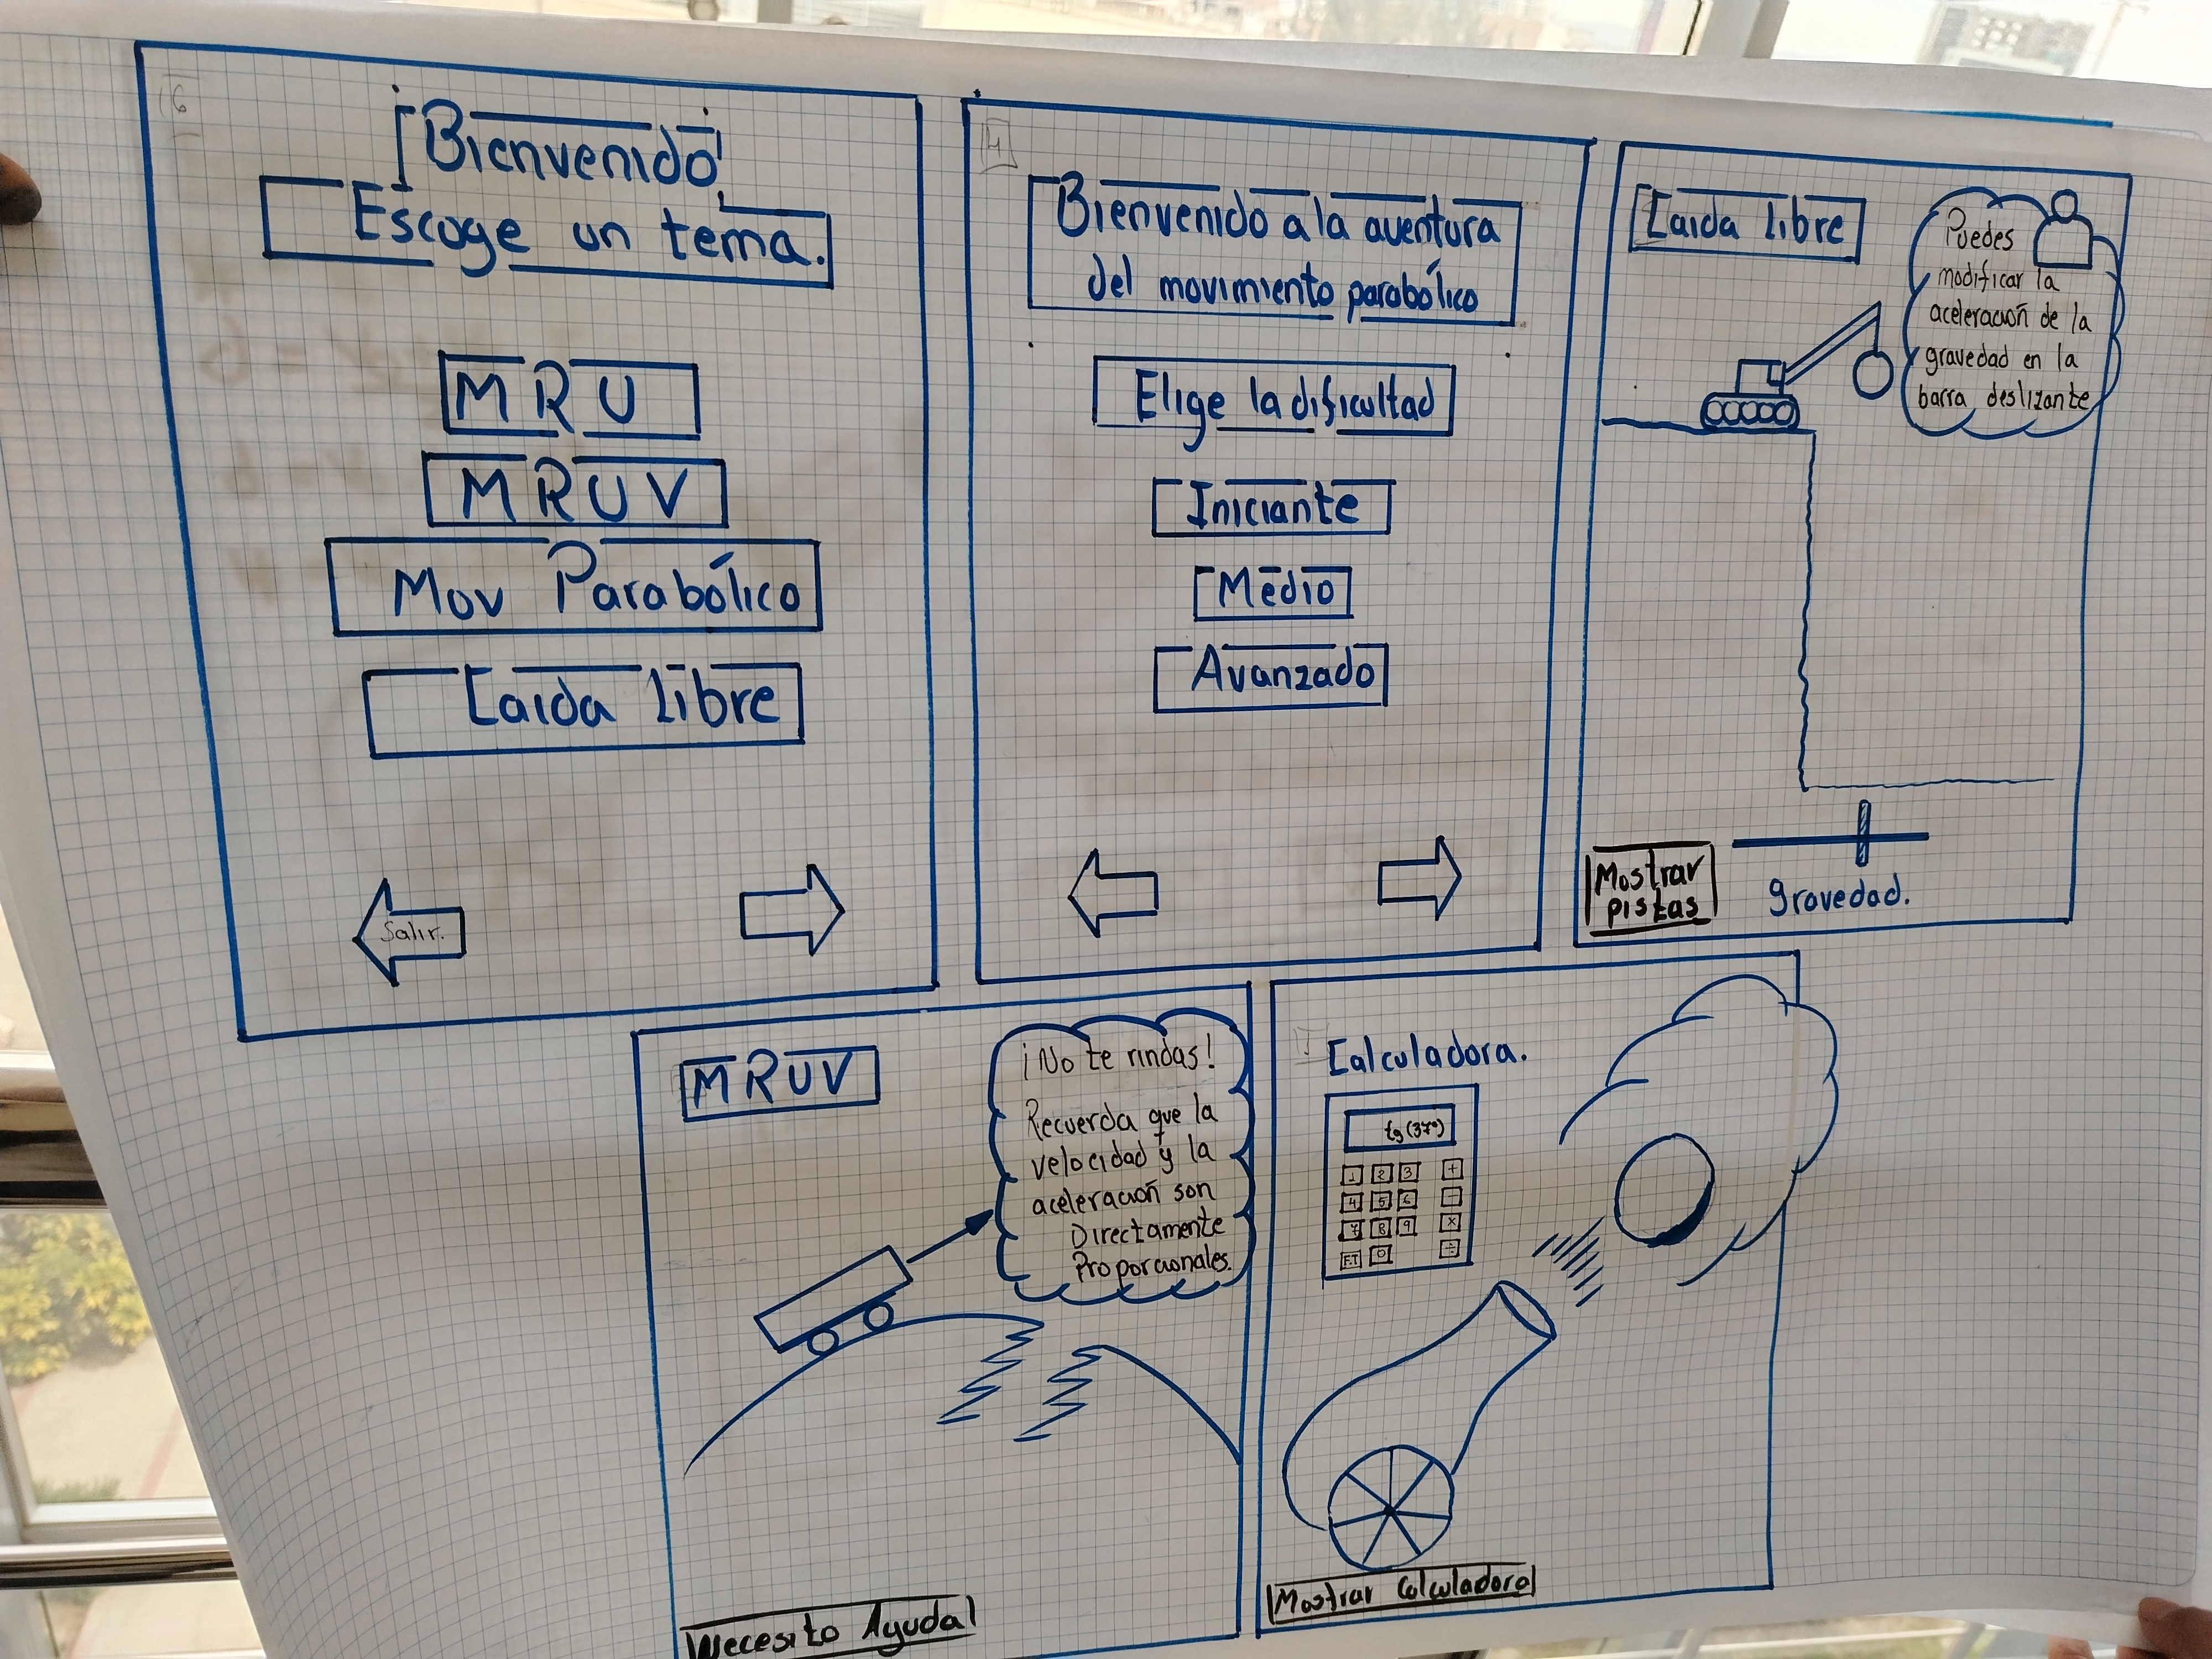 6
¡Bienvenido!
Escoge un tema.
MRU
MRUV
Mov Parabólico
Caida Libre
Salir.
4
Bienvenido a la aventura
del movimiento parabólico
Elige la dificultad
Iniciante
Medio
Avanzado
Caida Libre
Puedes
modificar la
aceleración de la
gravedad en la
barra deslizante
Mostrar
pistas
gravedad.
MRUV
¡No te rindas!
Recuerda que la
velocidad y la
aceleración son
Directamente
Proporcionales.
Necesito Ayuda
Calculadora.
tg(37°)
1 2 3 +
4 5 6 -
7 8 9 x
F.T 0 ÷
Mostrar Calculadora